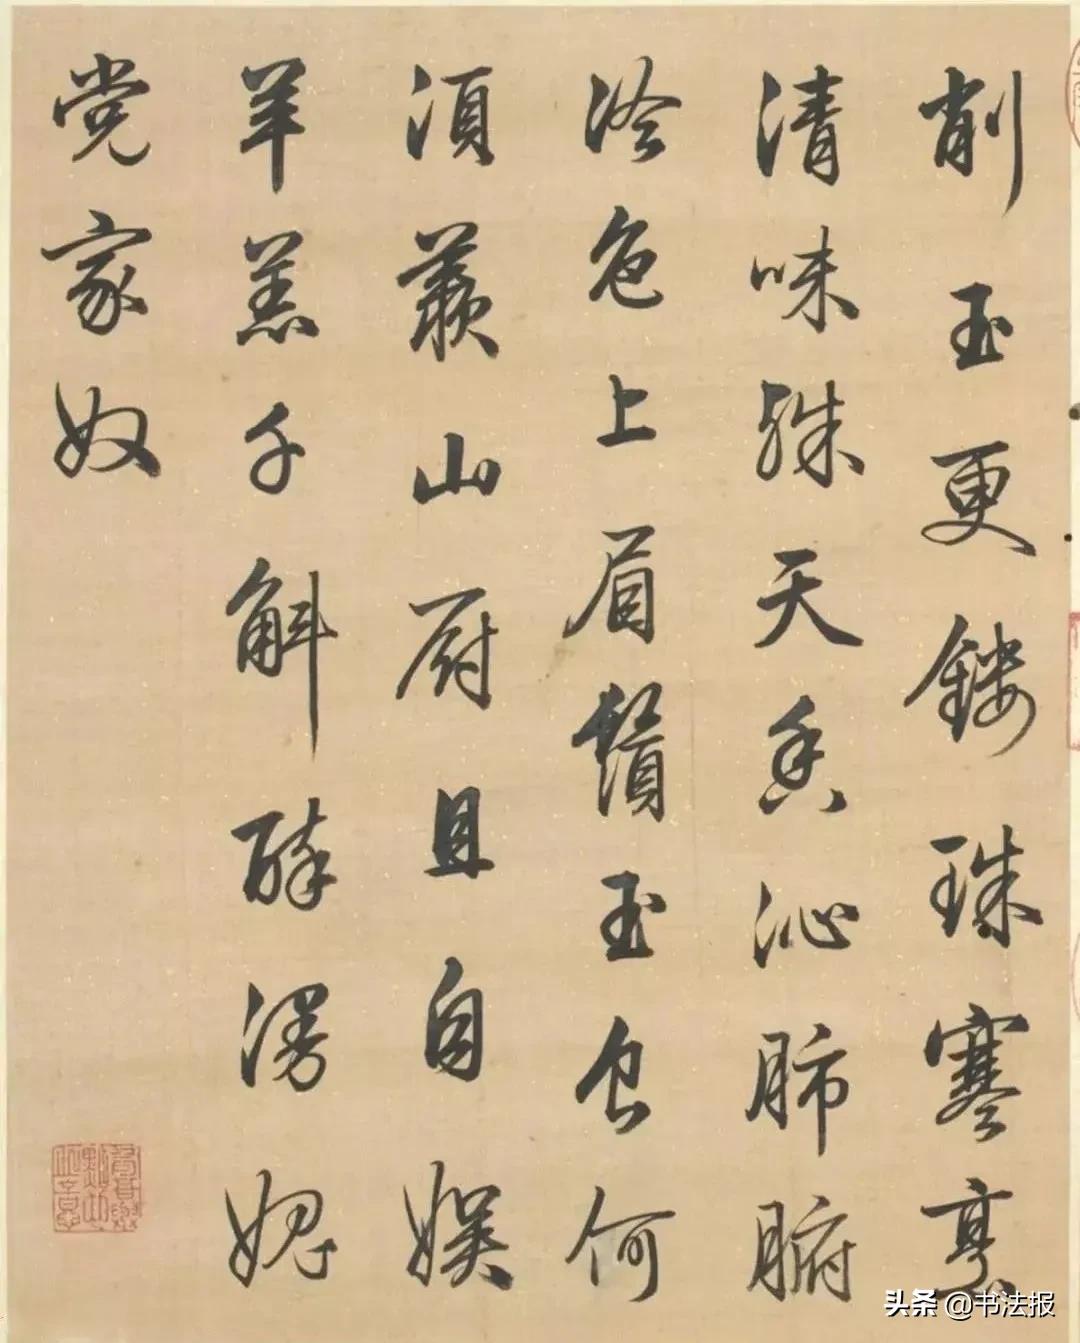 削玉更鏤珠寒烹
清味殊天香沁肺腑
冷色上眉鬚玉食何
須羨山厨且自娱
羊羔千斛醉漫媿
党家奴
头条 @书法报